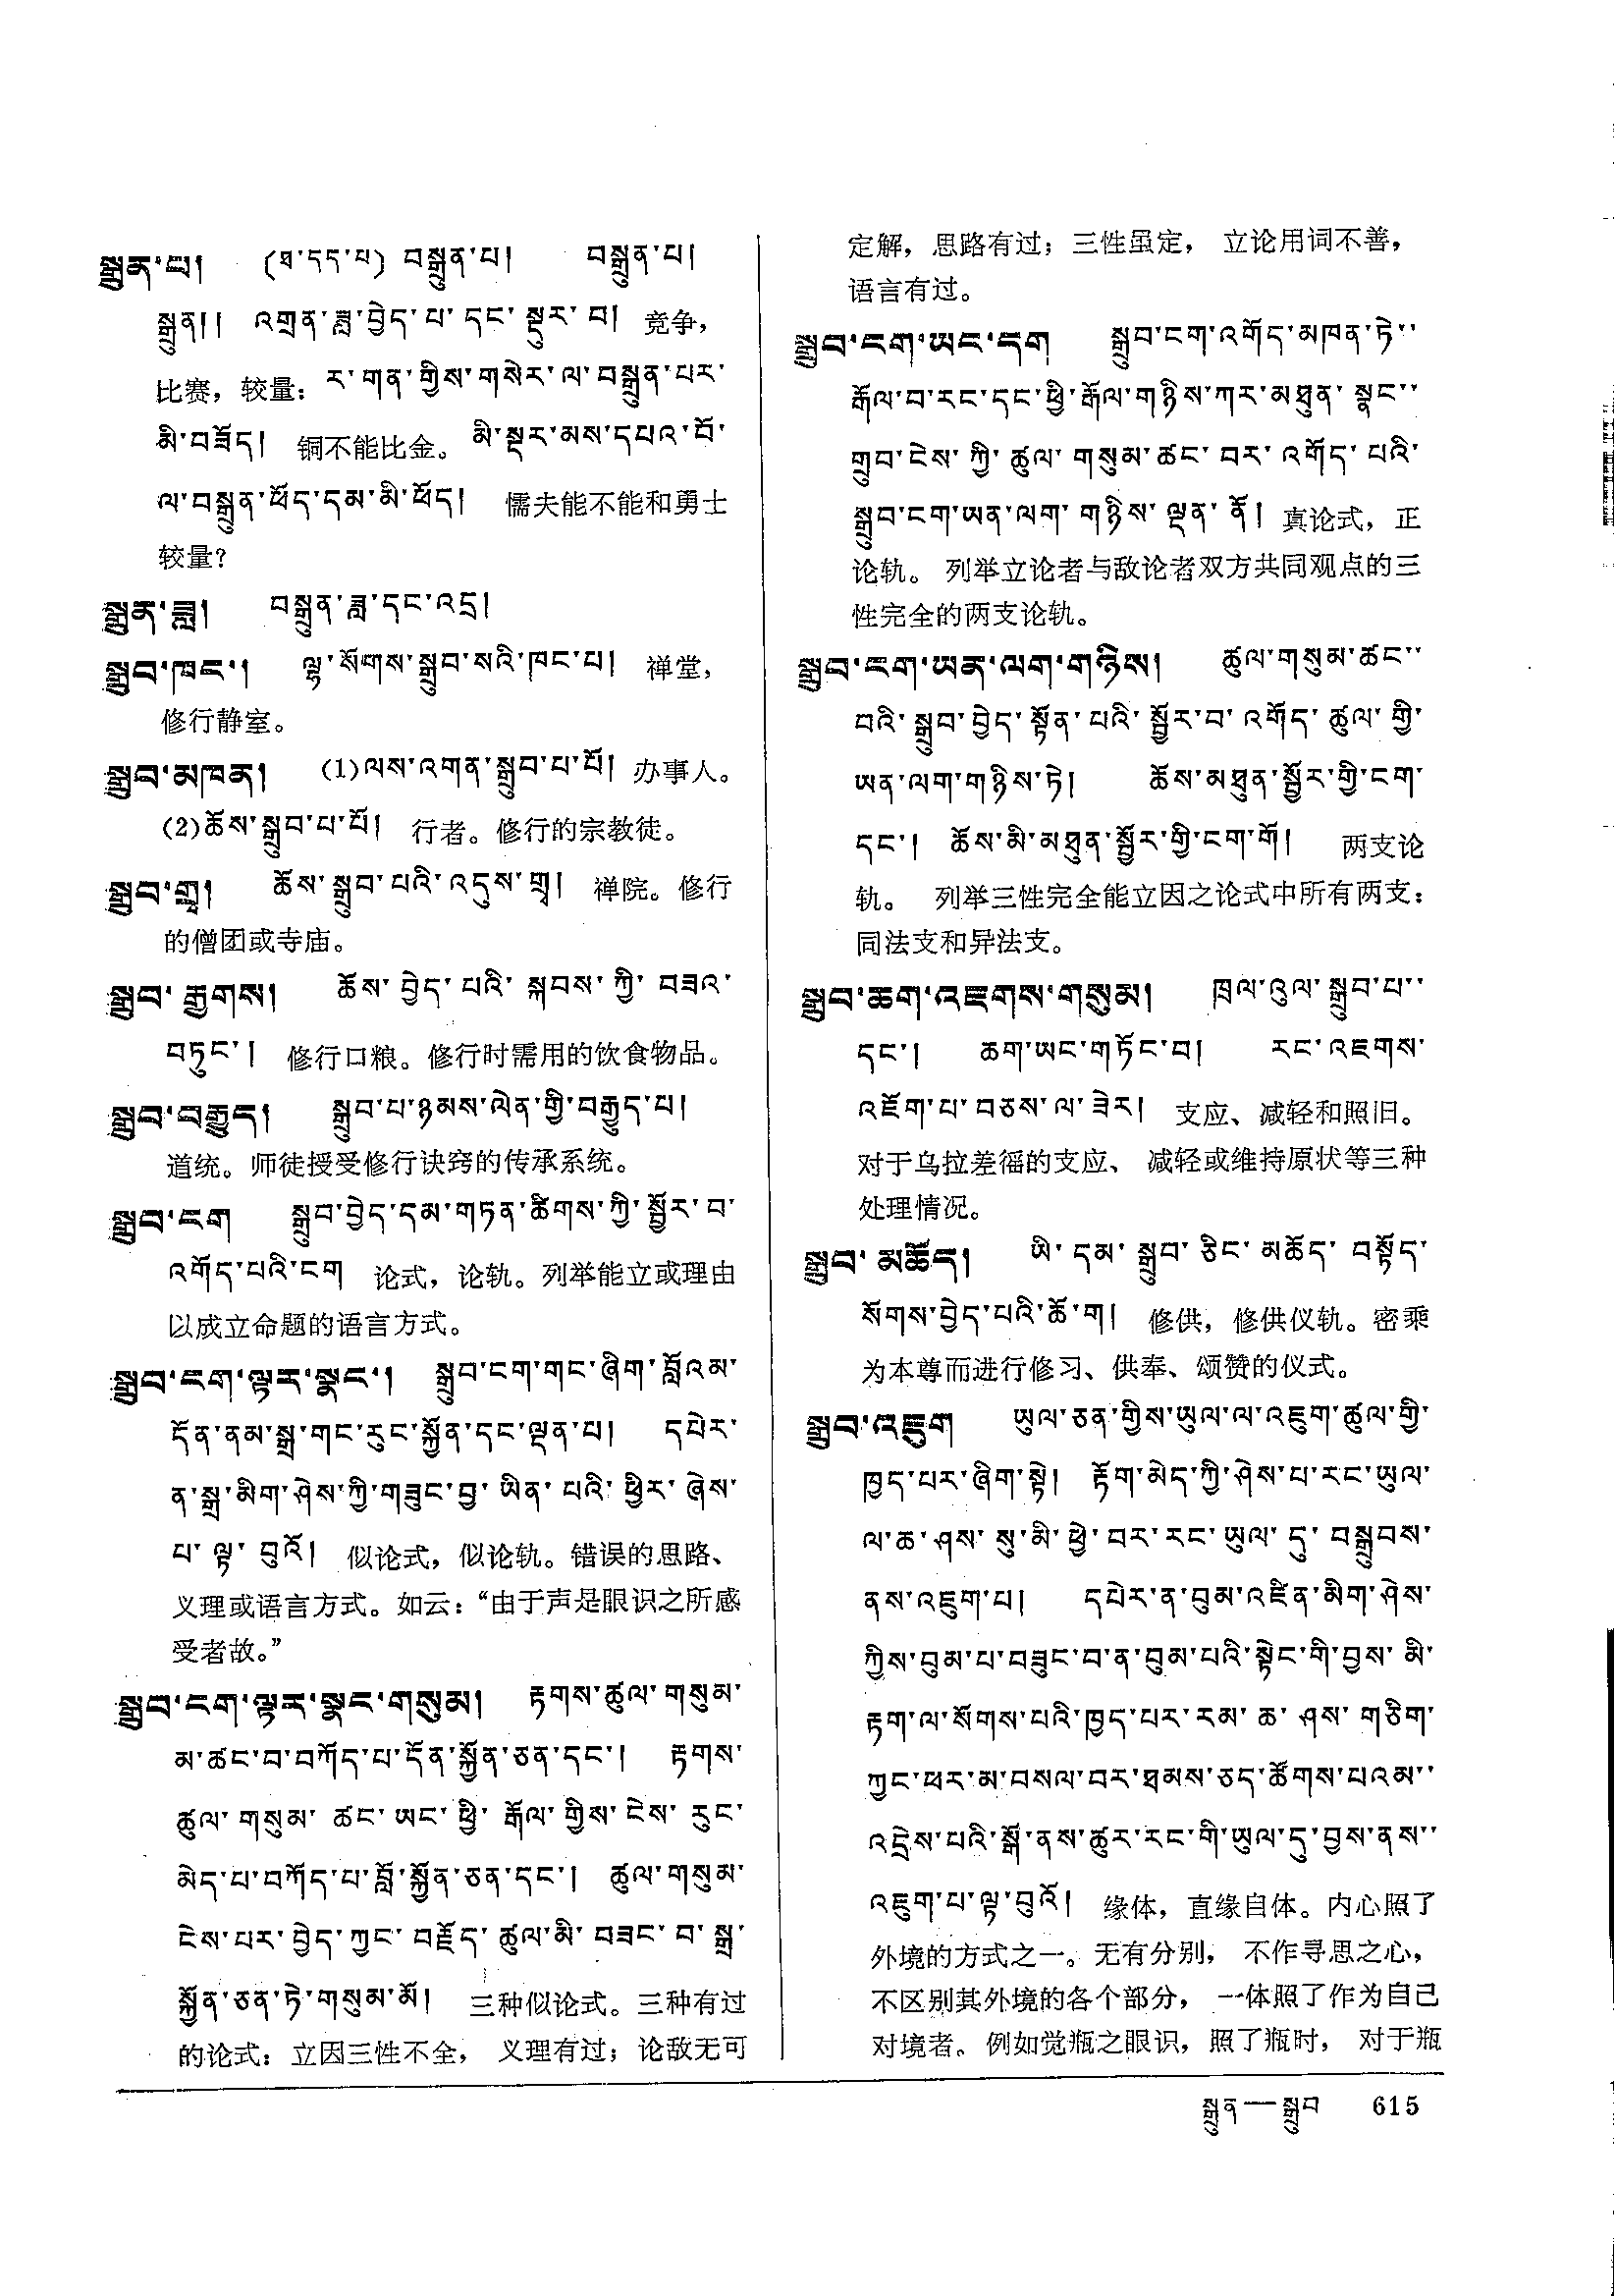 སྒྲུན་པ།  (ཐ་དད་པ) བསྒྲུན་པ།  བསྒྲུན་པ།
སྒྲུན།།  འགྲན་ཟླ་བྱེད་པ་དང་སྡུར་བ།  竞争，
比赛，较量：ར་གན་གྱིས་གསེར་ལ་བསྒྲུན་པར་
མི་བཟོད།  铜不能比金。མི་སྡར་མས་དཔའ་བོ་
ལ་བསྒྲུན་ཕོད་དམ་མི་ཕོད།  懦夫能不能和勇士
较量？
སྒྲུན་ཟླ།  བསྒྲུན་ཟླ་དང་འདྲ།
སྒྲུབ་ཁང་།  ལྷ་སོགས་སྒྲུབ་སའི་ཁང་པ།  禅堂，
修行静室。
སྒྲུབ་མཁན།  (1)ལས་འགན་སྒྲུབ་པ་པོ།  办事人。
(2)ཆོས་སྒྲུབ་པ་པོ།  行者。修行的宗教徒。
སྒྲུབ་གྲྭ།  ཆོས་སྒྲུབ་པའི་འདུས་གྲྭ།  禅院。修行
的僧团或寺庙。
སྒྲུབ་རྒྱགས།  ཆོས་བྱེད་པའི་སྐབས་ཀྱི་བཟའ་
བཏུང་།  修行口粮。修行时需用的饮食物品。
སྒྲུབ་བརྒྱུད།  སྒྲུབ་པ་ཉམས་ལེན་གྱི་བརྒྱུད་པ།
道统。师徒授受修行诀窍的传承系统。
སྒྲུབ་ངག  སྒྲུབ་བྱེད་དམ་གཏན་ཚིགས་ཀྱི་སྦྱོར་བ་
འགོད་པའི་ངག  论式，论轨。列举能立或理由
以成立命题的语言方式。
སྒྲུབ་ངག་ལྟར་སྣང་།  སྒྲུབ་ངག་གང་ཞིག་བློའམ་
དོན་ནམ་སྒྲ་གང་རུང་སྐྱོན་དང་ལྡན་པ།  དཔེར་
ན་སྒྲ་མིག་ཤེས་ཀྱི་གཟུང་བྱ་ཡིན་པའི་ཕྱིར་ཞེས་
པ་ལྟ་བུའོ།  似论式，似论轨。错误的思路、
义理或语言方式。如云：“由于声是眼识之所感
受者故。”
སྒྲུབ་ངག་ལྟར་སྣང་གསུམ།  རྟགས་ཚུལ་གསུམ་
མ་ཚང་བ་བཀོད་པ་དོན་སྐྱོན་ཅན་དང་།  རྟགས་
ཚུལ་གསུམ་ཚང་ཡང་ཕྱི་རྒོལ་གྱིས་ངེས་རུང་
མེད་པ་བཀོད་པ་བློ་སྐྱོན་ཅན་དང་།  ཚུལ་གསུམ་
ངེས་པར་བྱེད་ཀྱང་བརྗོད་ཚུལ་མི་བཟང་བ་སྒྲ་
སྐྱོན་ཅན་ཏེ་གསུམ་མོ།  三种似论式。三种有过
的论式：立因三性不全，义理有过；论敌无可
定解，思路有过；三性虽定，立论用词不善，
语言有过。
སྒྲུབ་ངག་ཡང་དག  སྒྲུབ་ངག་འགོད་མཁན་ཏེ་་
རྒོལ་བ་རང་དང་ཕྱི་རྒོལ་གཉིས་ཀར་མཐུན་སྣང་་
གྲུབ་ངེས་ཀྱི་ཚུལ་གསུམ་ཚང་བར་འགོད་པའི་
སྒྲུབ་ངག་ཡན་ལག་གཉིས་ལྡན་ནོ།  真论式，正
论轨。列举立论者与敌论者双方共同观点的三
性完全的两支论轨。
སྒྲུབ་ངག་ཡན་ལག་གཉིས།  ཚུལ་གསུམ་ཚང་་
བའི་སྒྲུབ་བྱེད་སྟོན་པའི་སྦྱོར་བ་འགོད་ཚུལ་གྱི་
ཡན་ལག་གཉིས་ཏེ།  ཆོས་མཐུན་སྦྱོར་གྱི་ངག་
དང་།  ཆོས་མི་མཐུན་སྦྱོར་གྱི་ངག་གོ།  两支论
轨。列举三性完全能立因之论式中所有两支：
同法支和异法支。
སྒྲུབ་ཆག་འཇགས་གསུམ།  ཁྲལ་འུལ་སྒྲུབ་པ་་
དང་།  ཆག་ཡང་གཏོང་བ།  རང་འཇགས་
འཇོག་པ་བཅས་ལ་ཟེར།  支应、减轻和照旧。
对于乌拉差徭的支应、减轻或维持原状等三种
处理情况。
སྒྲུབ་མཆོད།  ཡི་དམ་སྒྲུབ་ཅིང་མཆོད་བསྟོད་
སོགས་བྱེད་པའི་ཆོ་ག།  修供，修供仪轨。密乘
为本尊而进行修习、供奉、颂赞的仪式。
སྒྲུབ་འཇུག  ཡུལ་ཅན་གྱིས་ཡུལ་ལ་འཇུག་ཚུལ་གྱི་
ཁྱད་པར་ཞིག་སྟེ།  རྟོག་མེད་ཀྱི་ཤེས་པ་རང་ཡུལ་
ལ་ཆ་ཤས་སུ་མི་ཕྱེ་བར་རང་ཡུལ་དུ་བསྒྲུབས་
ནས་འཇུག་པ།  དཔེར་ན་བུམ་འཛིན་མིག་ཤེས་
ཀྱིས་བུམ་པ་བཟུང་བ་ན་བུམ་པའི་སྟེང་གི་བྱས་མི་
རྟག་ལ་སོགས་པའི་ཁྱད་པར་རམ་ཆ་ཤས་གཅིག་
ཀྱང་ཕར་མ་བསལ་བར་ཐམས་ཅད་ཚོགས་པའམ་་
འདྲེས་པའི་སྒོ་ནས་ཚུར་རང་གི་ཡུལ་དུ་བྱས་ནས་་
འཇུག་པ་ལྟ་བུའོ།  缘体，直缘自体。内心照了
外境的方式之一。无有分别，不作寻思之心，
不区别其外境的各个部分，一体照了作为自己
对境者。例如觉瓶之眼识，照了瓶时，对于瓶
སྒྲུན—སྒྲུབ  615